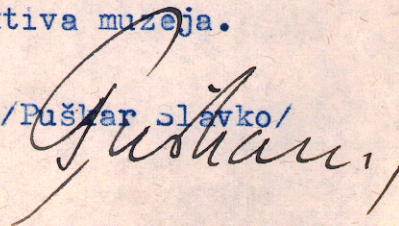 tiva muzeja.
/Puškar Slavko/
Puškar